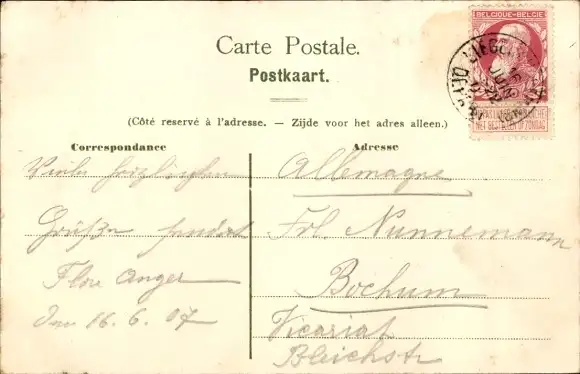 BELGIQUE-BELGIË
Carte Postale.
Postkaart.
(Côté reservé à l'adresse. — Zijde voor het adres alleen.)
Correspondance
Adresse
Viele herzlichen
Grüße sendet
Flore Anger
Den 16. 6. 07
Allemagne
Frl. Nunnemann
Bochum
Vicariat
Bleichstr